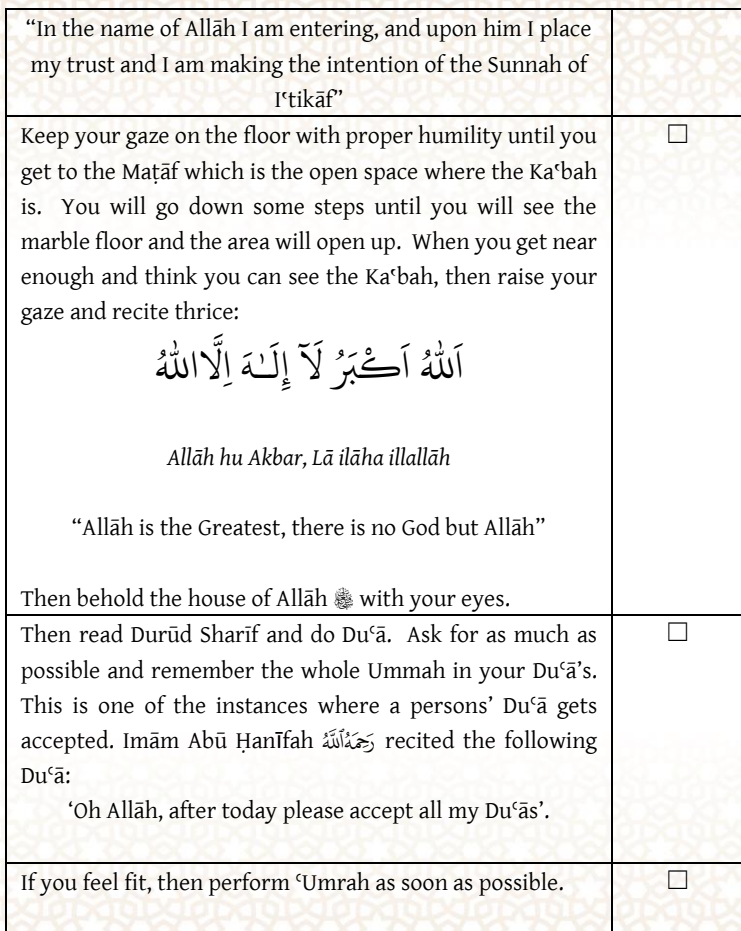 “In the name of Allāh I am entering, and upon him I place
my trust and I am making the intention of the Sunnah of
Iʿtikāf”
Keep your gaze on the floor with proper humility until you
get to the Maṭāf which is the open space where the Kaʿbah
is. You will go down some steps until you will see the
marble floor and the area will open up. When you get near
enough and think you can see the Kaʿbah, then raise your
gaze and recite thrice:
اَللّٰهُ اَكْبَرُ لَآ إِلَـٰهَ اِلَّااللّٰهُ
Allāh hu Akbar, Lā ilāha illallāh
“Allāh is the Greatest, there is no God but Allāh”
Then behold the house of Allāh ﷻ with your eyes.
☐
Then read Durūd Sharīf and do Duʿā. Ask for as much as
possible and remember the whole Ummah in your Duʿā’s.
This is one of the instances where a persons’ Duʿā gets
accepted. Imām Abū Ḥanīfah رَحِمَهُ ٱللَّهُ recited the following
Duʿā:
‘Oh Allāh, after today please accept all my Duʿās’.
☐
If you feel fit, then perform ʿUmrah as soon as possible.
☐